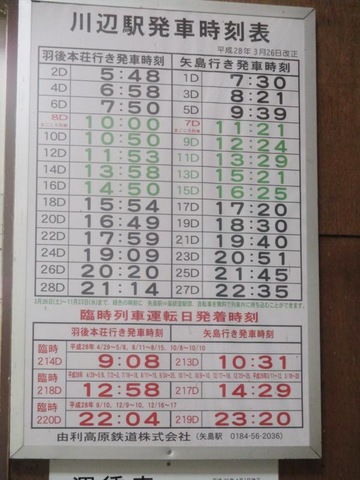 川辺駅発車時刻表
平成28年3月26日改正
羽後本荘行き発車時刻 矢島行き発車時刻
2D 5:48 1D 7:30
4D 6:58 3D 8:21
6D 7:50 5D 9:39
8D まごころ列車 10:00 7D まごころ列車 11:21
10D 10:50 9D 12:24
12D 11:53 11D 13:29
14D 13:58 13D 15:21
16D 14:50 15D 16:25
18D 15:54 17D 17:20
20D 16:49 19D 18:30
22D 17:59 21D 19:40
24D 19:09 23D 20:51
26D 20:20 25D 21:45
28D 21:14 27D 22:35
臨時列車運転日発着時刻
羽後本荘行き発車時刻 矢島行き発車時刻
臨時 平成28年 4/29~5/8、8/11~8/15、10/8~10/10
214D 9:08 213D 10:31
臨時
218D 12:58 217D 14:29
臨時 平成28年 9/10、12/9~10、12/16~17
220D 22:04 219D 23:20
由利高原鉄道株式会社 (矢島駅 0184-56-2036)